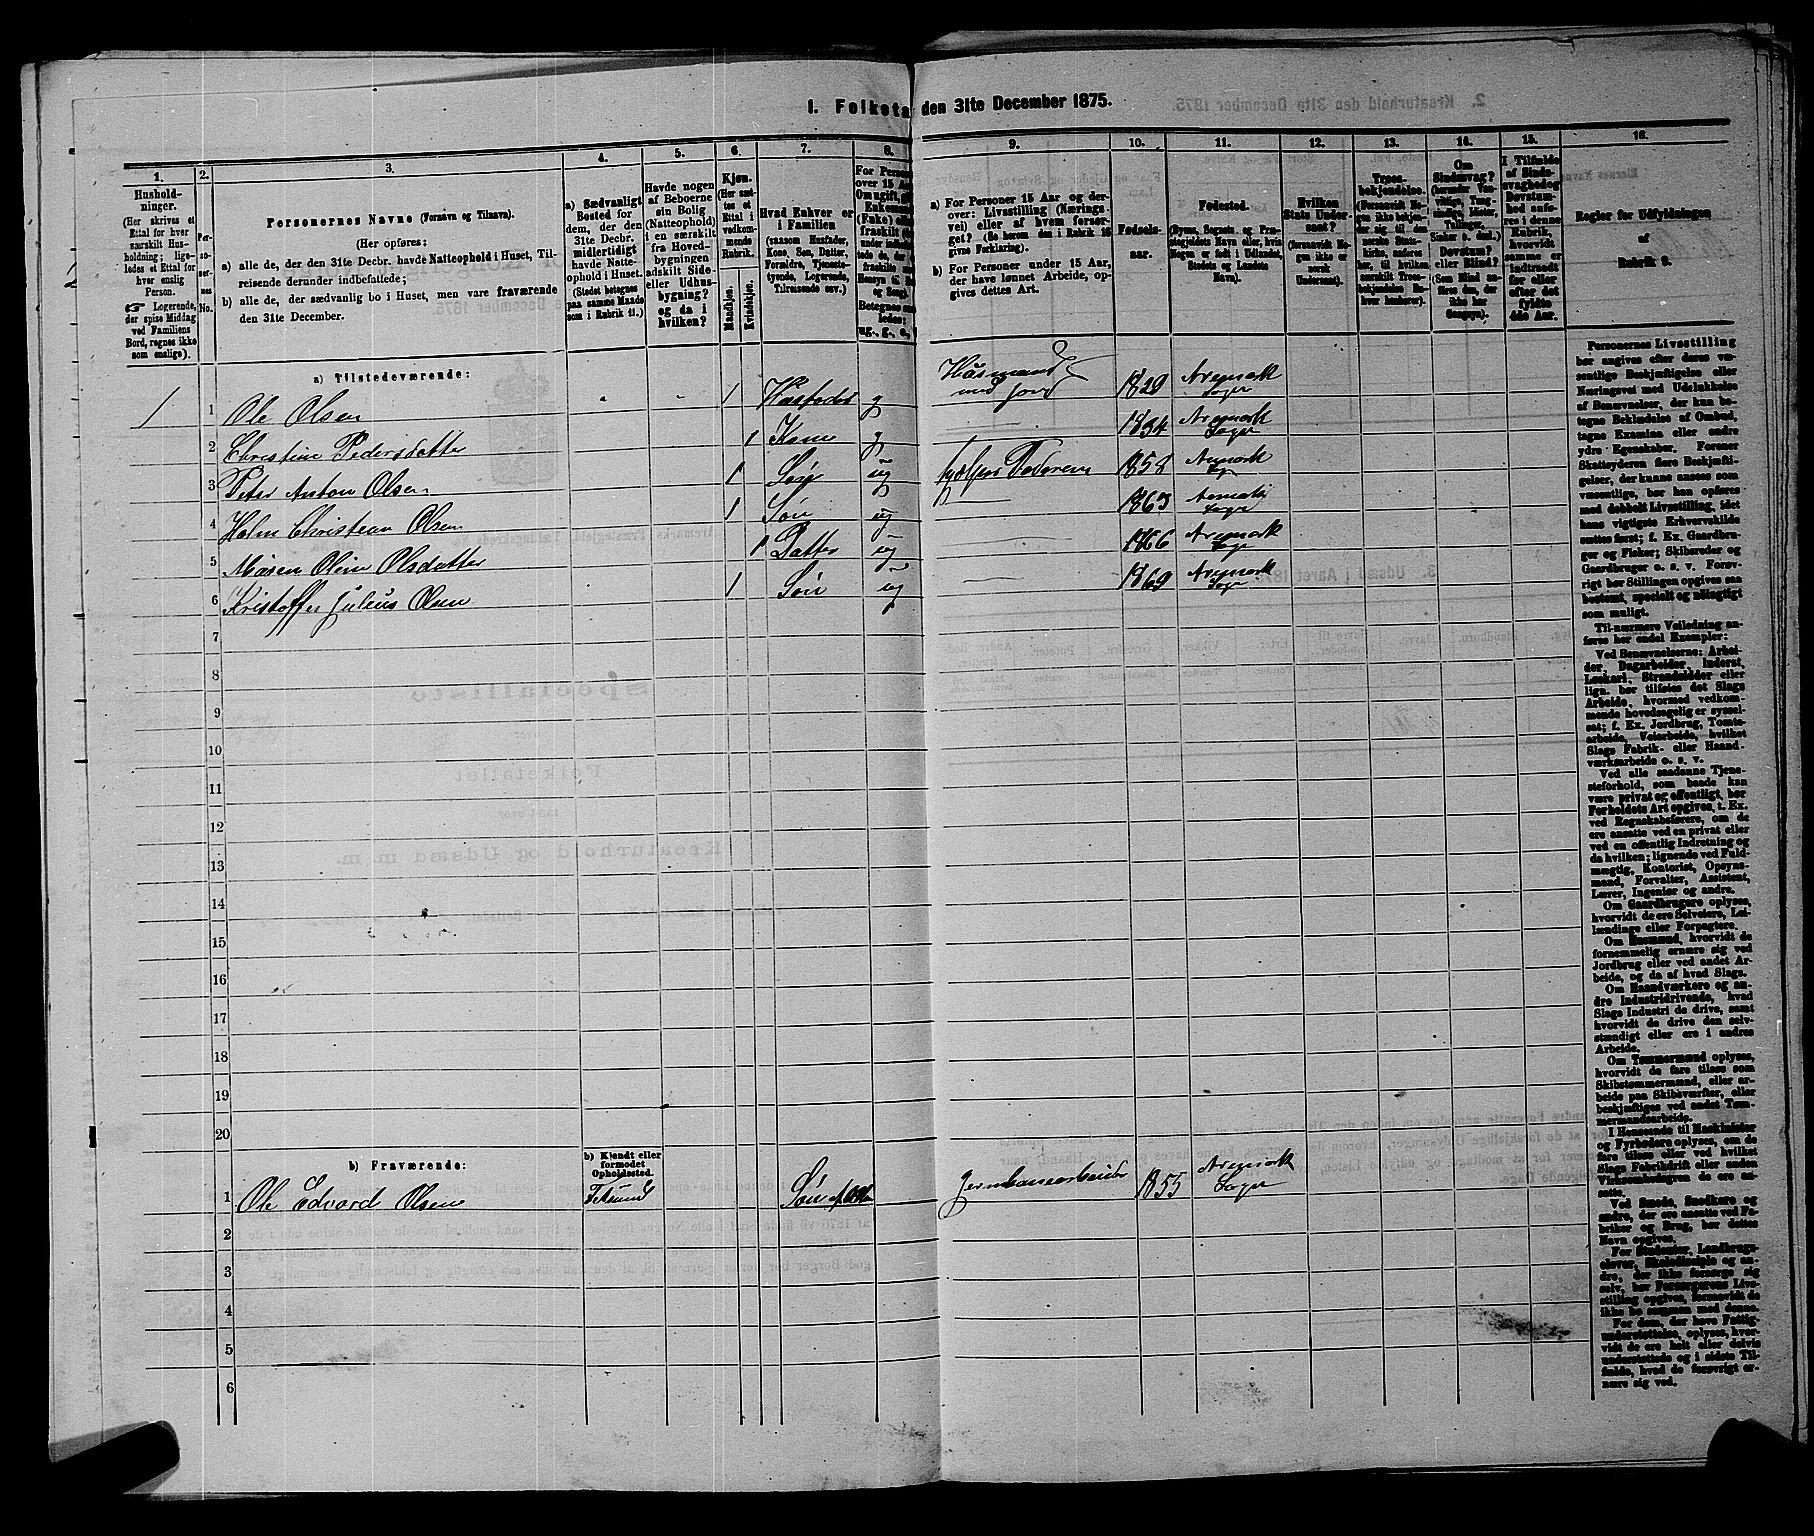 I. Folketa den 31te December 1875.
1. 2. 3. 4. 5. 6. 7. 8. 9. 10. 11. 12. 13. 14. 15. 16.
Hushold-
ninger.
(Her skrives et
Ettal for hver
særskilt Hus-
holdning; lige-
ledes et Ettal for
hver enslig
Person.
Logerende,
der spise Middag
ved Familiens
Bord, regnes ikke
som enslige).
Per-
so-
ner-
nes
No.
Personernes Navne (Fornavn og Tilnavn).
(Her opføres:
a) alle de, der den 31te Decbr. havde Natteophold i Huset, Til-
reisende derunder indbefattede;
b) alle de, der sædvanlig bo i Huset, men vare fraværende
den 31te December.
a) Sædvanligt
Bosted for
dem, der den
31te Decbr.
midlertidigt
havde Natte-
ophold i Huset.
(Stedet betegnes
paa samme Maade
som i Rubrik 11.)
Havde nogen
af Beboerne
sin Bolig
(Natteophold)
i en særskilt
fra Hoved-
bygningen
adskilt Side-
eller Udhus-
bygning?
og da i
hvilken?
Kjøn.
(Her sæt-
tes et
Ettal i
vedkom-
mende
Rubrik.
Mandkjøn.
Kvindekjøn.
Hvad Enhver er
i Familien
(saasom Husfader,
Kone, Søn, Datter,
Forældre, Tjeneste-
tyende, Logerende,
Tilreisende osv.)
For Persone
over 15 Aa
Om ugift, gi
Enkemand
(Enke) eller
fraskilt
Betegnes saa-
ledes:
ug., g., e.,
a) For Personer 15 Aar og der-
over: Livsstilling (Nærings-
vei) eller af hvem forsør-
get? (Se herom den i Rubrik 16
givne Forklaring).
b) For Personer under 15 Aar,
der have lønnet Arbeide, op-
gives dettes Art.
Fødsels-
aar.
Fødested.
(Byens, Sognets og Præ-
stegjeldets Navn eller, hvis
Nogen er født i Udlandet,
Stedets og Landets
Navn).
Hvilken
Stats Under-
saat?
(forsaavidt No-
gen ikke er
norsk
Undersaat).
Troes-
bekjendelse.
(Forsaavidt No-
gen ikke bekjen-
der sig til den
norske Stats-
kirke, anføres
her, til hvilken
særskilt Troes-
bekjendelse En-
hver henhører).
Om
Sindssvag?
(herunder Van-
vittige, Tung-
sindige, Idioter,
Tullinger,
Sinker o. desl.)
Døvstum?
eller Blind?
(Som Blind an-
føres den, der
ikke har
Gangsyn).
I Tilfælde
af Sinds-
svaghed og
Døvstum-
hed anfø-
res i denne
Rubrik,
hvorvidt
samme er
indtraadt
før eller
efter det
fyldte
4de Aar.
Regler for Udfyldningen
af
Rubrik 9.
a) Tilstedeværende:
1 1 Ole Olsen 1 Husfader g Husmand med jord 1829 Aremark Sogn
2 Christine Pedersdatter 1 Kone g 1834 Aremark Sogn
3 Peter Anton Olsen 1 Søn ug hjælper Faderen 1858 Aremark Sogn
4 Holm Christian Olsen 1 Søn ug 1863 Aremark Sogn
5 Maren Oline Olsdatter 1 Datter ug 1866 Aremark Sogn
6 Kristoffer Julius Olsen 1 Søn ug 1869 Aremark Sogn
7
8
9
10
11
12
13
14
15
16
17
18
19
20
b) Fraværende:
b) Kjendt eller
formodet
Opholdssted.
1 Ole Edvard Olsen Søn af Jernbanearbeider 1855 Aremark Sogn
2
3
4
5
6
Personernes Livsstilling
bør angives efter deres væ-
sentlige Beskjæftigelse eller
Næringsvei med Udelukkelse
af Benævnelser, der kun be-
tegne Beklædelse af Ombud,
tagne Examina eller andre
ydre Egenskaber. Forener
Skatteyderen flere Beskjæfti-
gelser, der kunne ansees som
væsentlige, bør han opføres
med dobbelt Livsstilling, idet
hans vigtigste Erhvervskilde
sættes først; f. Ex. Gaardbru-
ger og Fisker; Skibsreder og
Gaardbruger o. s. v. Forøv-
rigt bør Stillingen opgives saa
bestemt, specielt og nøiagtigt
som muligt.
Til nærmere Veiledning an-
føres her endel Exempler:
Ved Benævnelserne: Arbei-
der, Dagarbeider, Inderst,
Løskarl, Strandsidder eller
lign. bør tilføies det Slags
Arbeide, hvormed vedkom-
mende hovedsagelig er syssel-
sat; f. Ex. Jordbrug, Tomte-
arbeide, Veiarbeide, hvilket
Slags Fabrik- eller Haand-
værksarbeide o. s. v.
Ved alle saadanne Tjene-
steforhold, som baade kan
være privat og offentligt, bør
Forholdets Art opgives, t. Ex.
ved Regnskabsførere, om de
ere ansatte ved en privat eller
ved en offentlig Indretning og
da hvilken; lignende ved Fuld-
mægtig, Kontorist, Opsyns-
mand, Forvalter, Assistent,
Lærer, Ingeniør og andre.
Om Gaardbrugere oplyses,
hvorvidt de ere Selveiere, Lei-
lændinge eller Forpagtere.
Om Husmænd, hvorvidt de
fornemmelig ernære sig ved
Jordbrug eller ved andet Ar-
beide, og da af hvad Slags.
Om Haandværkere og an-
dre Industridrivende, hvad
Slags Industri de drive, samt
hvorvidt de drive den selv-
stændigt eller ere i andres
Arbeide.
Om Tømmermænd oplyses,
hvorvidt de fare tilsøs som
Skibstømmermænd, eller ar-
beide paa Skibsværfter, eller
beskjæftiges ved andet Tøm-
mermandsarbeide.
I Henseende til Maskinister
og Fyrbødere oplyses, om de
fare tilsøs eller ved hvilket
Slags Fabrikdrift eller anden
Virksomhedsgren de ere an-
satte.
Ved Smede, Snedkere og
andre, der ere ansatte ved Fa-
briker og Brug, bør dettes
Navn opgives.
For Studenter, Landbrugs-
elever, Skoledisciple og an-
dre, der ikke forsørge sig
selv, bør Forsørgerens Livs-
stilling opgives, forsaavidt de
ikke bo sammen med denne.
For dem, der have Fattig-
understøttelse, oplyses, hvor-
vidt de ere helt eller delvis
understøttede og i sidste Til-
fælde, hvad de forøvrigt er-
nære sig ved.